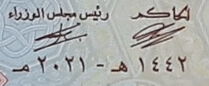 الحاكم رئيس مجلس الوزراء
١٤٤٢ هـ - ٢٠٢١ مـ